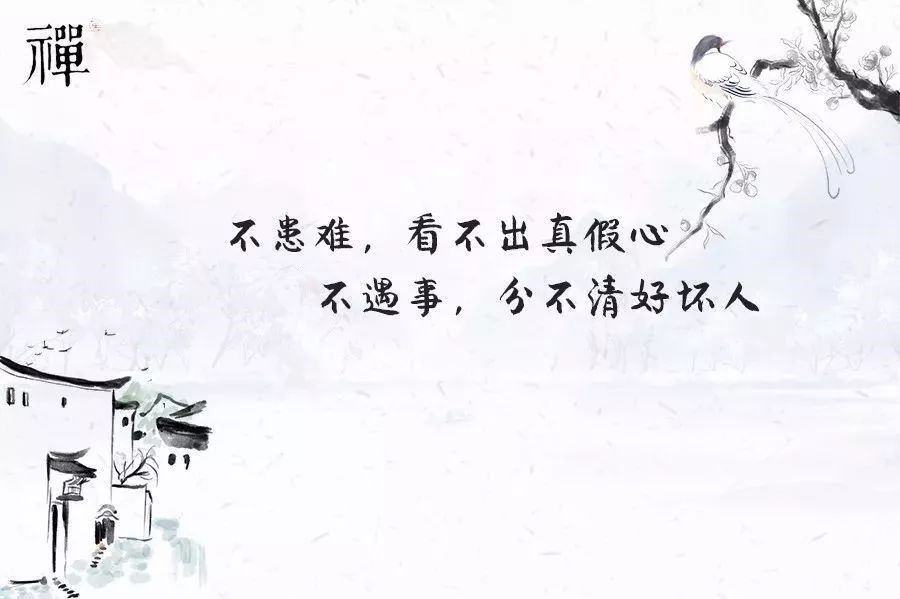 禪
不患难，看不出真假心
不遇事，分不清好坏人